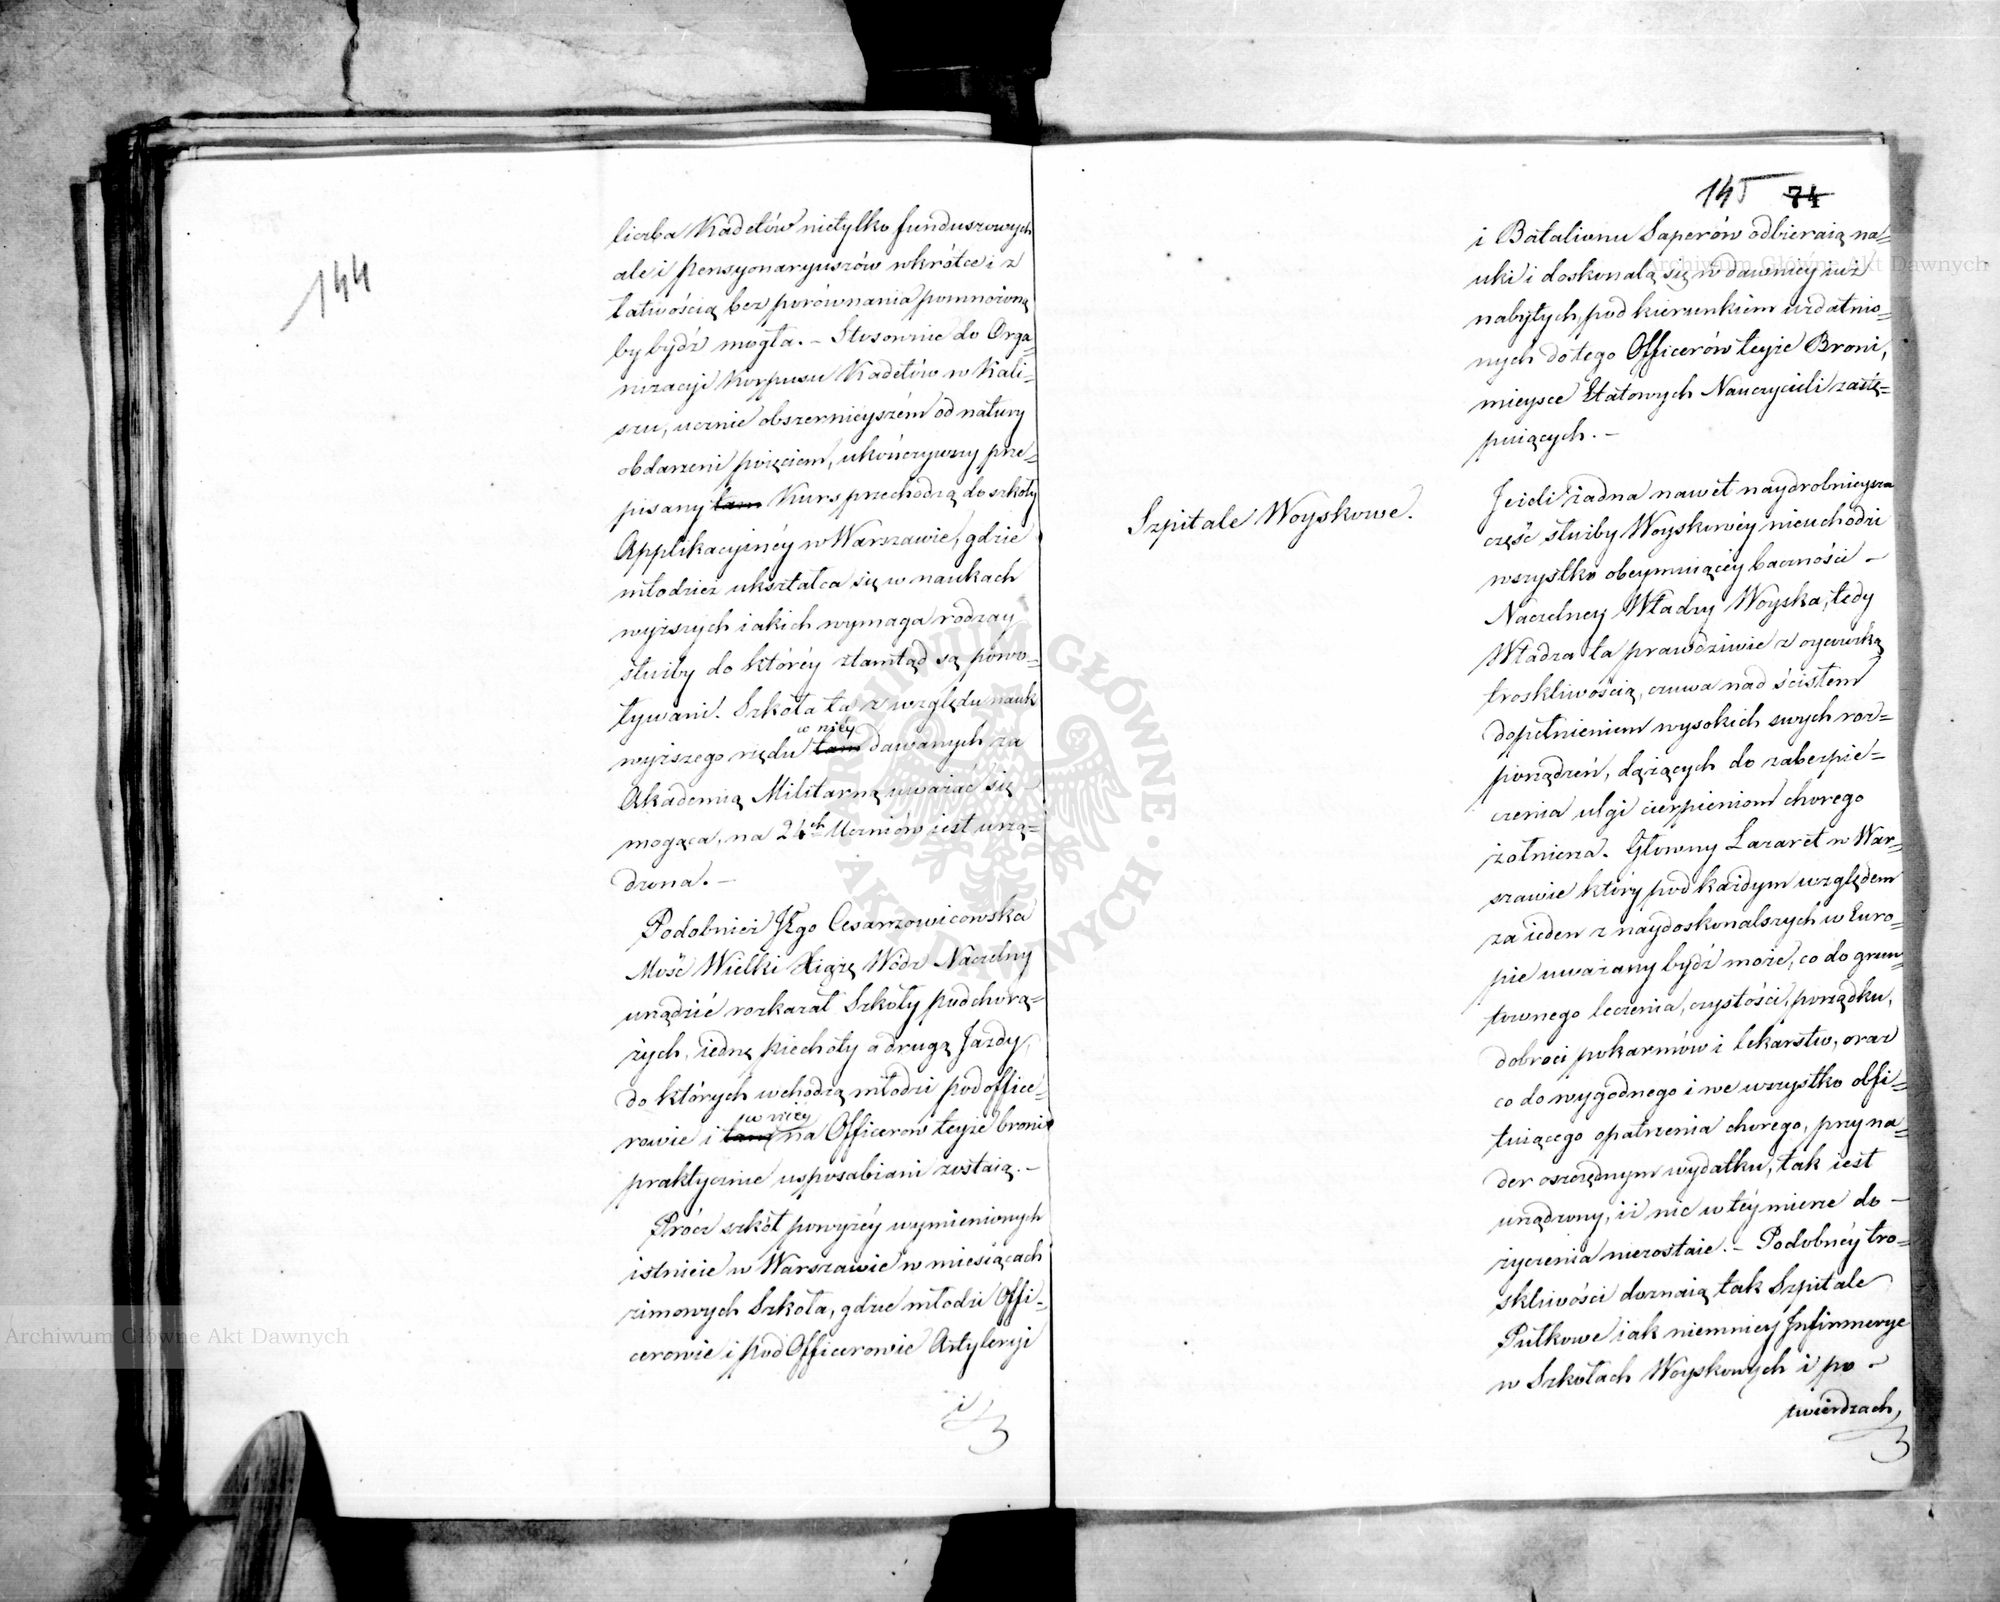 144
liczba Kadetów nietylko funduszowych
ale i pensyonaryuszów wkrótce i z
łatwością bez porównania pomnożoną
by bydź mogła. – Stosownie do Orga=
nizacyi Korpusu Kadetów w Kali=
szu, ucznie obszernieyszém od natury
obdarzeni poięciem, ukończywszy prze=
pisany tam Kurs przechodzą do szkoły
Applikacyinéy w Warszawie, gdzie
młodzież ukształca się w naukach
wyższych iakich wymaga rodzay
służby do któréy ztamtąd są powo=
ływani. Szkoła ta z względu nauk
w niéy
wyższego rzędu tam dawanych za
Akademią Militarną uważać się –
mogąca, na 24ch Uczniów iest urzą=
dzona. –
Podobnież JEgo Cesarzowicowska
Mość Wielki Xiążę Wódz Naczelny
urządzić rozkazał Szkoły podchorą=
żych, iednę piechoty a drugą Jazdy,
do których wchodzą młodzi podoffice=
w niéy
rowie i tam na Officerow teyże broni
praktycznie usposabiani zostaią. –
Prócz szkół powyżéy wymienionych
istnieie w Warszawie w miesiącach
zimowych Szkoła, gdzie młodzi Offi=
cerowie i pod Officerowie Artyleryi
i
145 74
i Batalionu Saperów odbieraią na=
uki i doskonalą się w dawniey iuż
nabytych, pod kierunkiem uzdatnio=
nych do tego Officerów teyże Broni,
mieysce Etatowych Nauczycieli zastę=
puiących. –
Szpitale Woyskowe.
Jeżeli żadna nawet naydrobnieysza
część służby Woyskowéy nieuchodzi
wszystko obeymuiącéy baczności –
Naczelney Władzy Woyska, tedy
Władza ta prawdziwie z oycowską
troskliwością, czuwa nad ścisłem
dopełnieniem wysokich swych roz=
porządzeń, dążących do zabezpie=
czenia ulgi cierpieniom chorego
żołnierza. Główny Lazaret w War=
szawie który pod każdym względem
za ieden z naydoskonalszych w Euro=
pie uważany bydź może, co do grun=
townego leczenia, czystości, porządku,
dobroci pokarmów i lekarstw, oraz
co do wygodnego i we wszystko obfi=
tuiącego opatrzenia chorego, przy na=
der oszczędnym wydatku, tak iest
urządzony, iż nic w téy mierze do –
życzenia niezostaie. – Podobnéy tro=
skliwości doznaią tak Szpitale
Pułkowe iak niemniey Infirmerye
w Szkołach Woyskowych i po –
twierdzach,
Archiwum Główne Akt Dawnych
Archiwum Główne Akt Dawnych
ARCHIWUM GŁÓWNE · AKT DAWNYCH ·